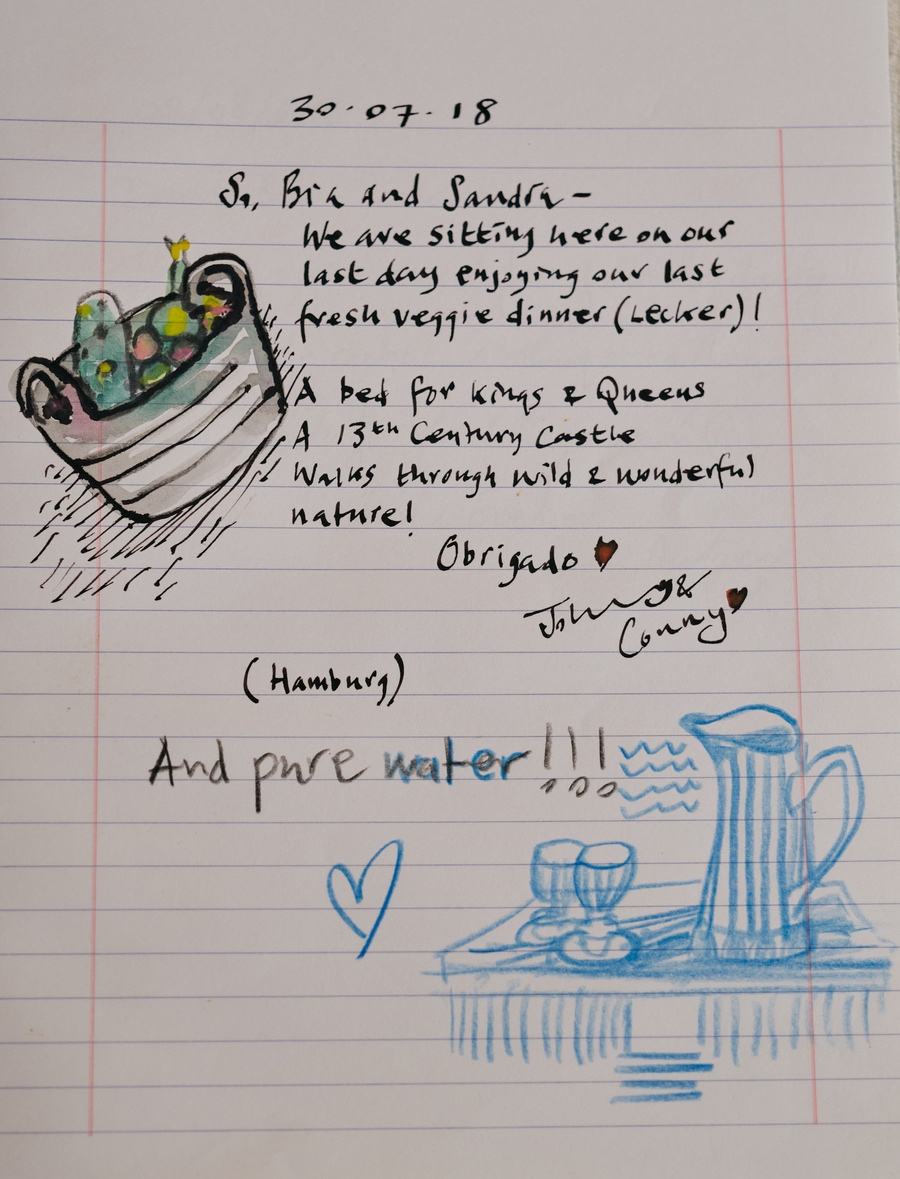 30.07.18
So, Bia and Sandra –
We are sitting here on our
last day enjoying our last
fresh veggie dinner (Lecker)!
A bed for Kings & Queens
A 13th Century Castle
Walks through wild & wonderful
nature!
Obrigado
&
Conny
(Hamburg)
And pure water!!!